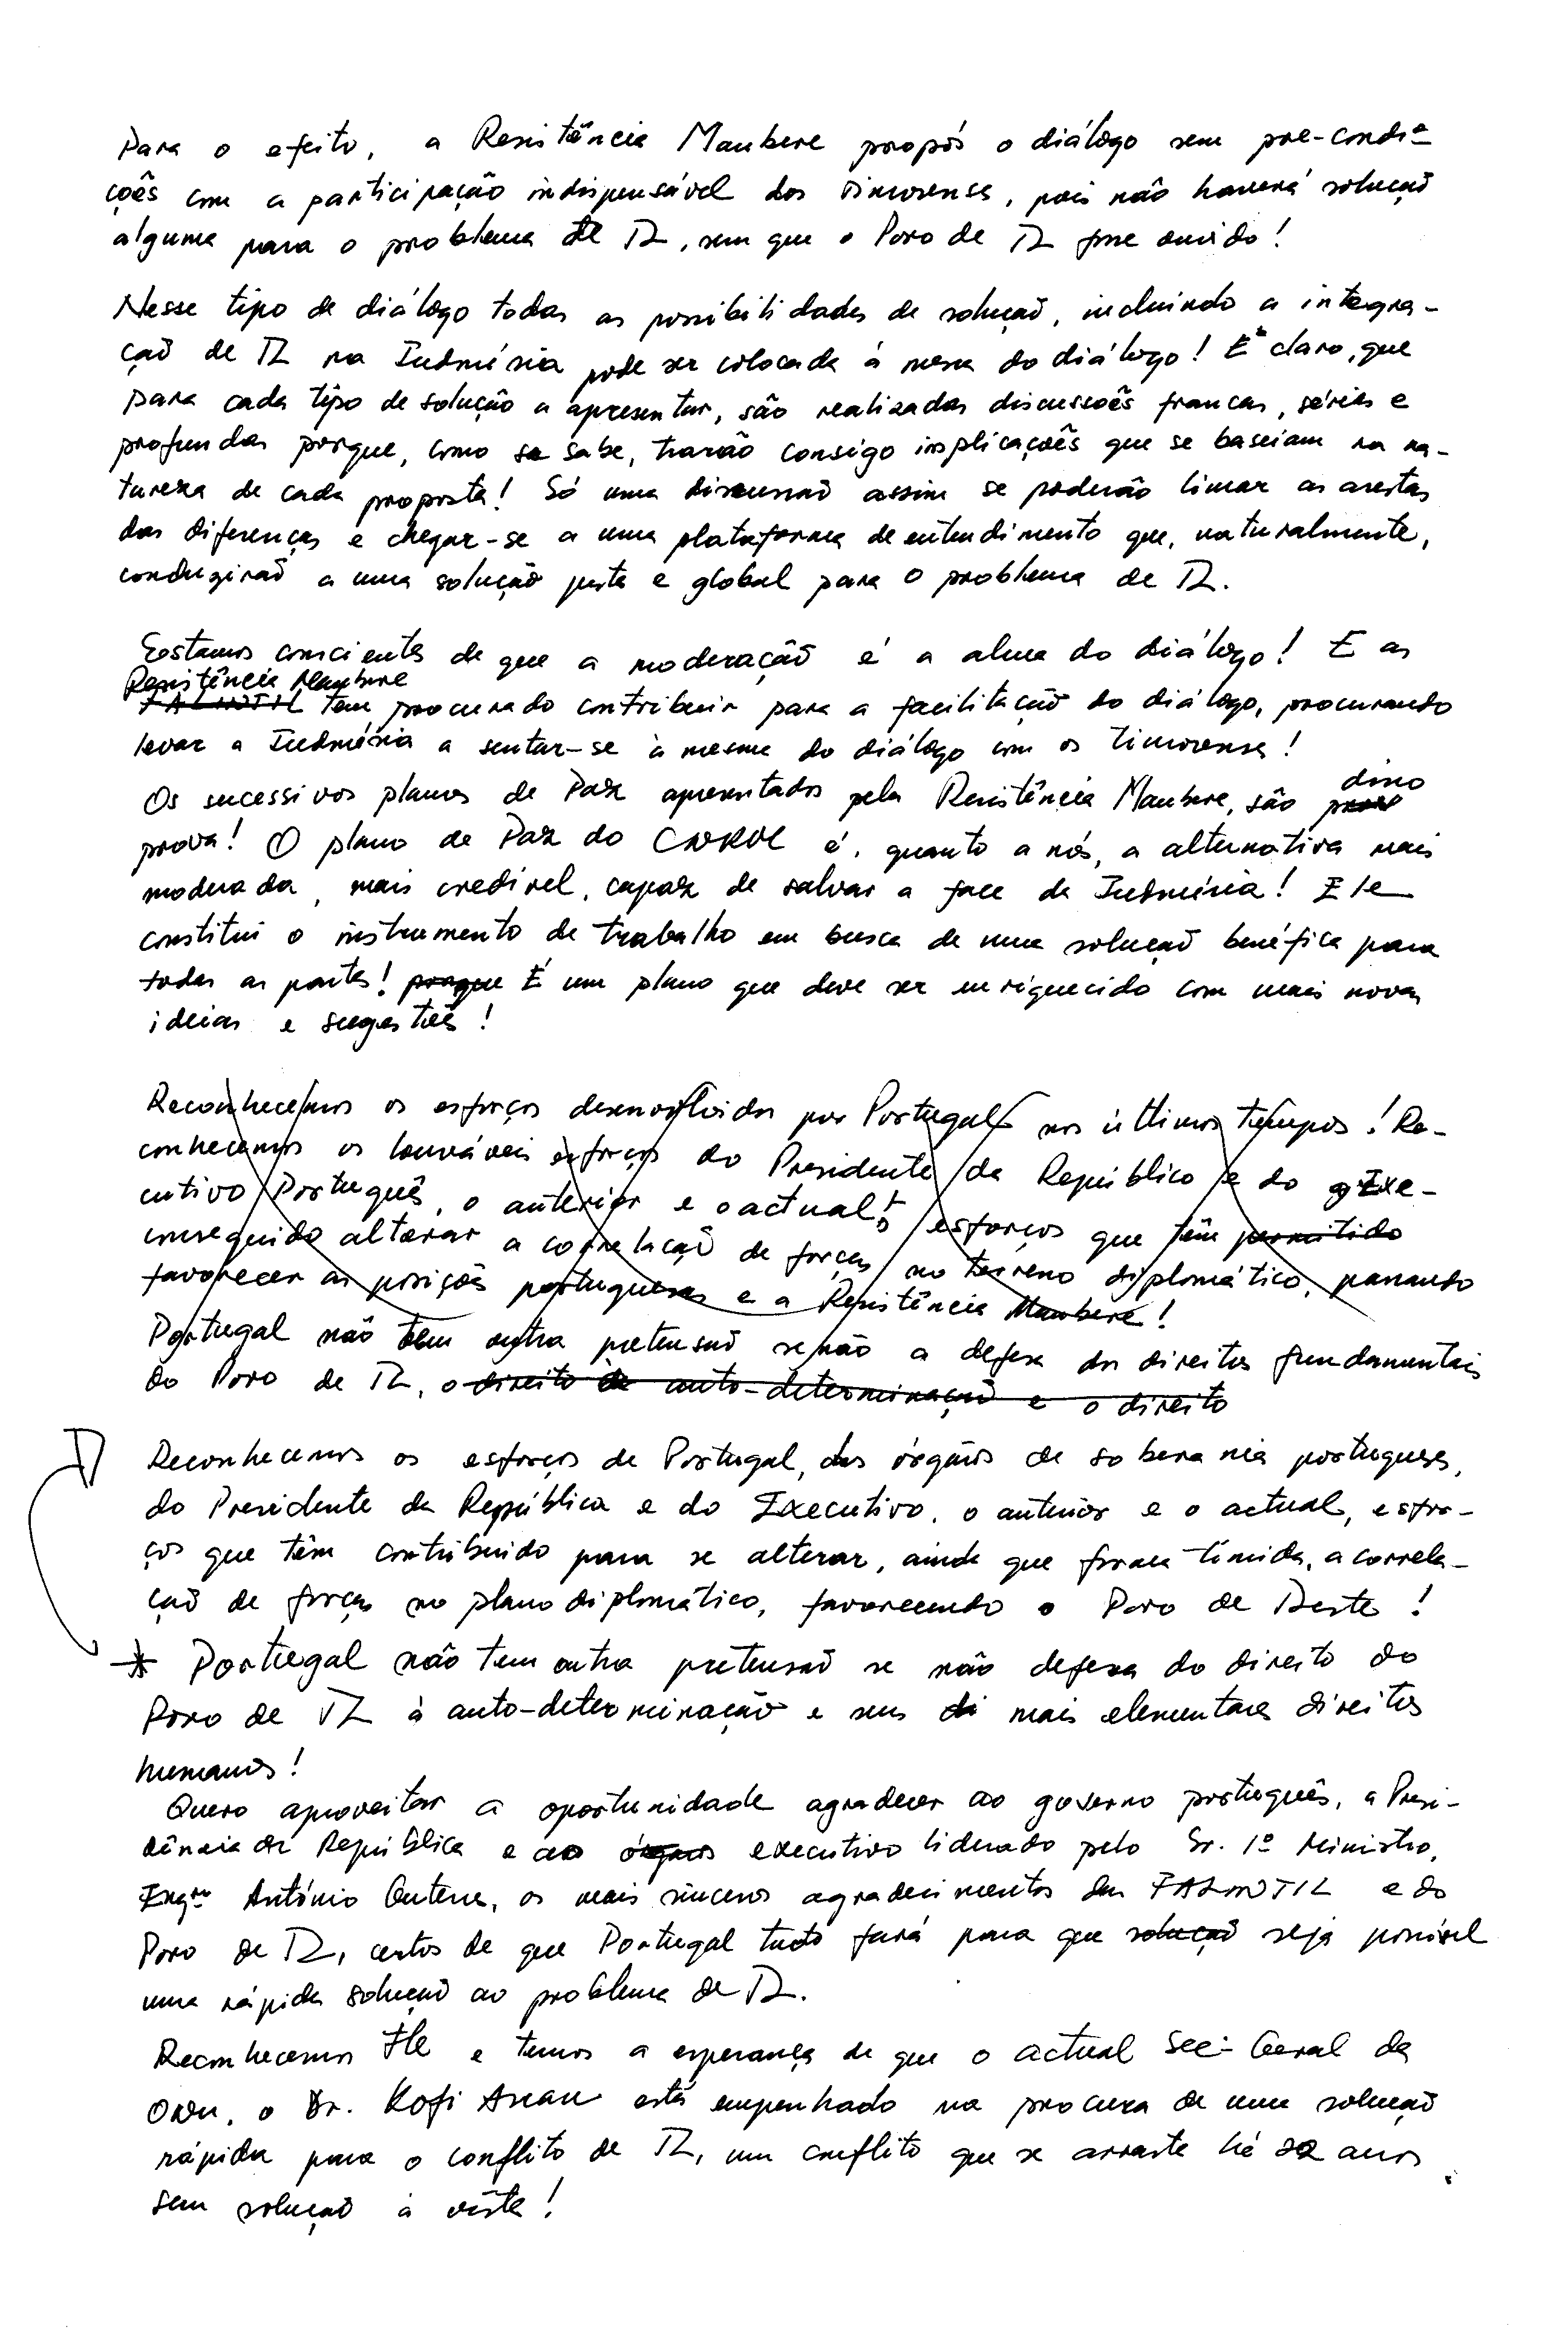 Para o efeito, a Resistência Maubere propôs o diálogo sem pre-condi-
ções com a participação indispensável dos timorenses, pois não haverá solução
alguma para o problema de TL, sem que o Povo de TL fosse ouvido!
Nesse tipo de diálogo todas as possibilidades de solução, incluindo a integra-
ção de TL na Indonésia pode ser colocada à mesa do diálogo! É claro, que
para cada tipo de solução a apresentar, são realizadas discussões francas, sérias e
profundas porque, como se sabe, trarão consigo implicações que se baseiam na na-
tureza de cada proposta! Só uma discussão assim se poderão limar as arestas
das diferenças e chegar-se a uma plataforma de entendimento que, naturalmente,
conduzirão a uma solução justa e global para o problema de TL.
Estamos conscientes de que a moderação é a alma do diálogo! E as
Resistência Maubere
FALINTIL tem procurado contribuir para a facilitação do diálogo, procurando
levar a Indonésia a sentar-se à mesma do diálogo com os timorenses!
Os sucessivos planos de Paz apresentados pela Resistência Maubere, são disso
prova! O plano de Paz do CNRM é, quanto a nós, a alternativa mais
moderada, mais credivel, capaz de salvar a face da Indonésia! Ele
constitui o instrumento de trabalho em busca de uma solução benéfica para
todas as partes! porque É um plano que deve ser enriquecido com mais novas
ideias e sugestões!
Reconhecemos os esforços desenvolvidos por Portugal nos últimos tempos! Re-
conhecemos os louváveis esforços do Presidente da República e do Exe-
cutivo Português, o anterior e o actual! esforços que têm permitido
conseguido alterar a correlação de forças no terreno diplomático, passando
favorecer as posições portuguesas e a Resistência Maubere!
Portugal não tem outra pretensão senão a defesa dos direitos fundamentais
do Povo de TL, o direito de auto-determinação e o direito
Reconhecemos os esforços de Portugal, dos órgãos de soberania portugueses,
do Presidente da República e do Executivo, o anterior e o actual, esfor-
ços que têm contribuido para se alterar, ainda que forma tímida, a correla-
ção de forças no plano diplomático, favorecendo o Povo de Leste!
* Portugal não tem outra pretensão se não defesa do direito do
Povo de TL à auto-determinação e seus di mais elementares direitos
humanos!
Quero aproveitar a oportunidade agradecer ao governo português, a Presi-
dência da República e ao órgãos executivo liderado pelo Sr. 1º Ministro,
Engro António Guterres, os mais sinceros agradecimentos das FALINTIL e do
Povo de TL, certos de que Portugal tudo fará para que solução seja possível
uma rápida solução ao problema de TL.
Reconhecemos e temos a esperança de que o actual Sec-Geral da
ONU, o Dr. Kofi Anan está empenhado na procura de uma solução
rápida para o conflito de TL, um conflito que se arraste há 22 anos
sem solução à vista!